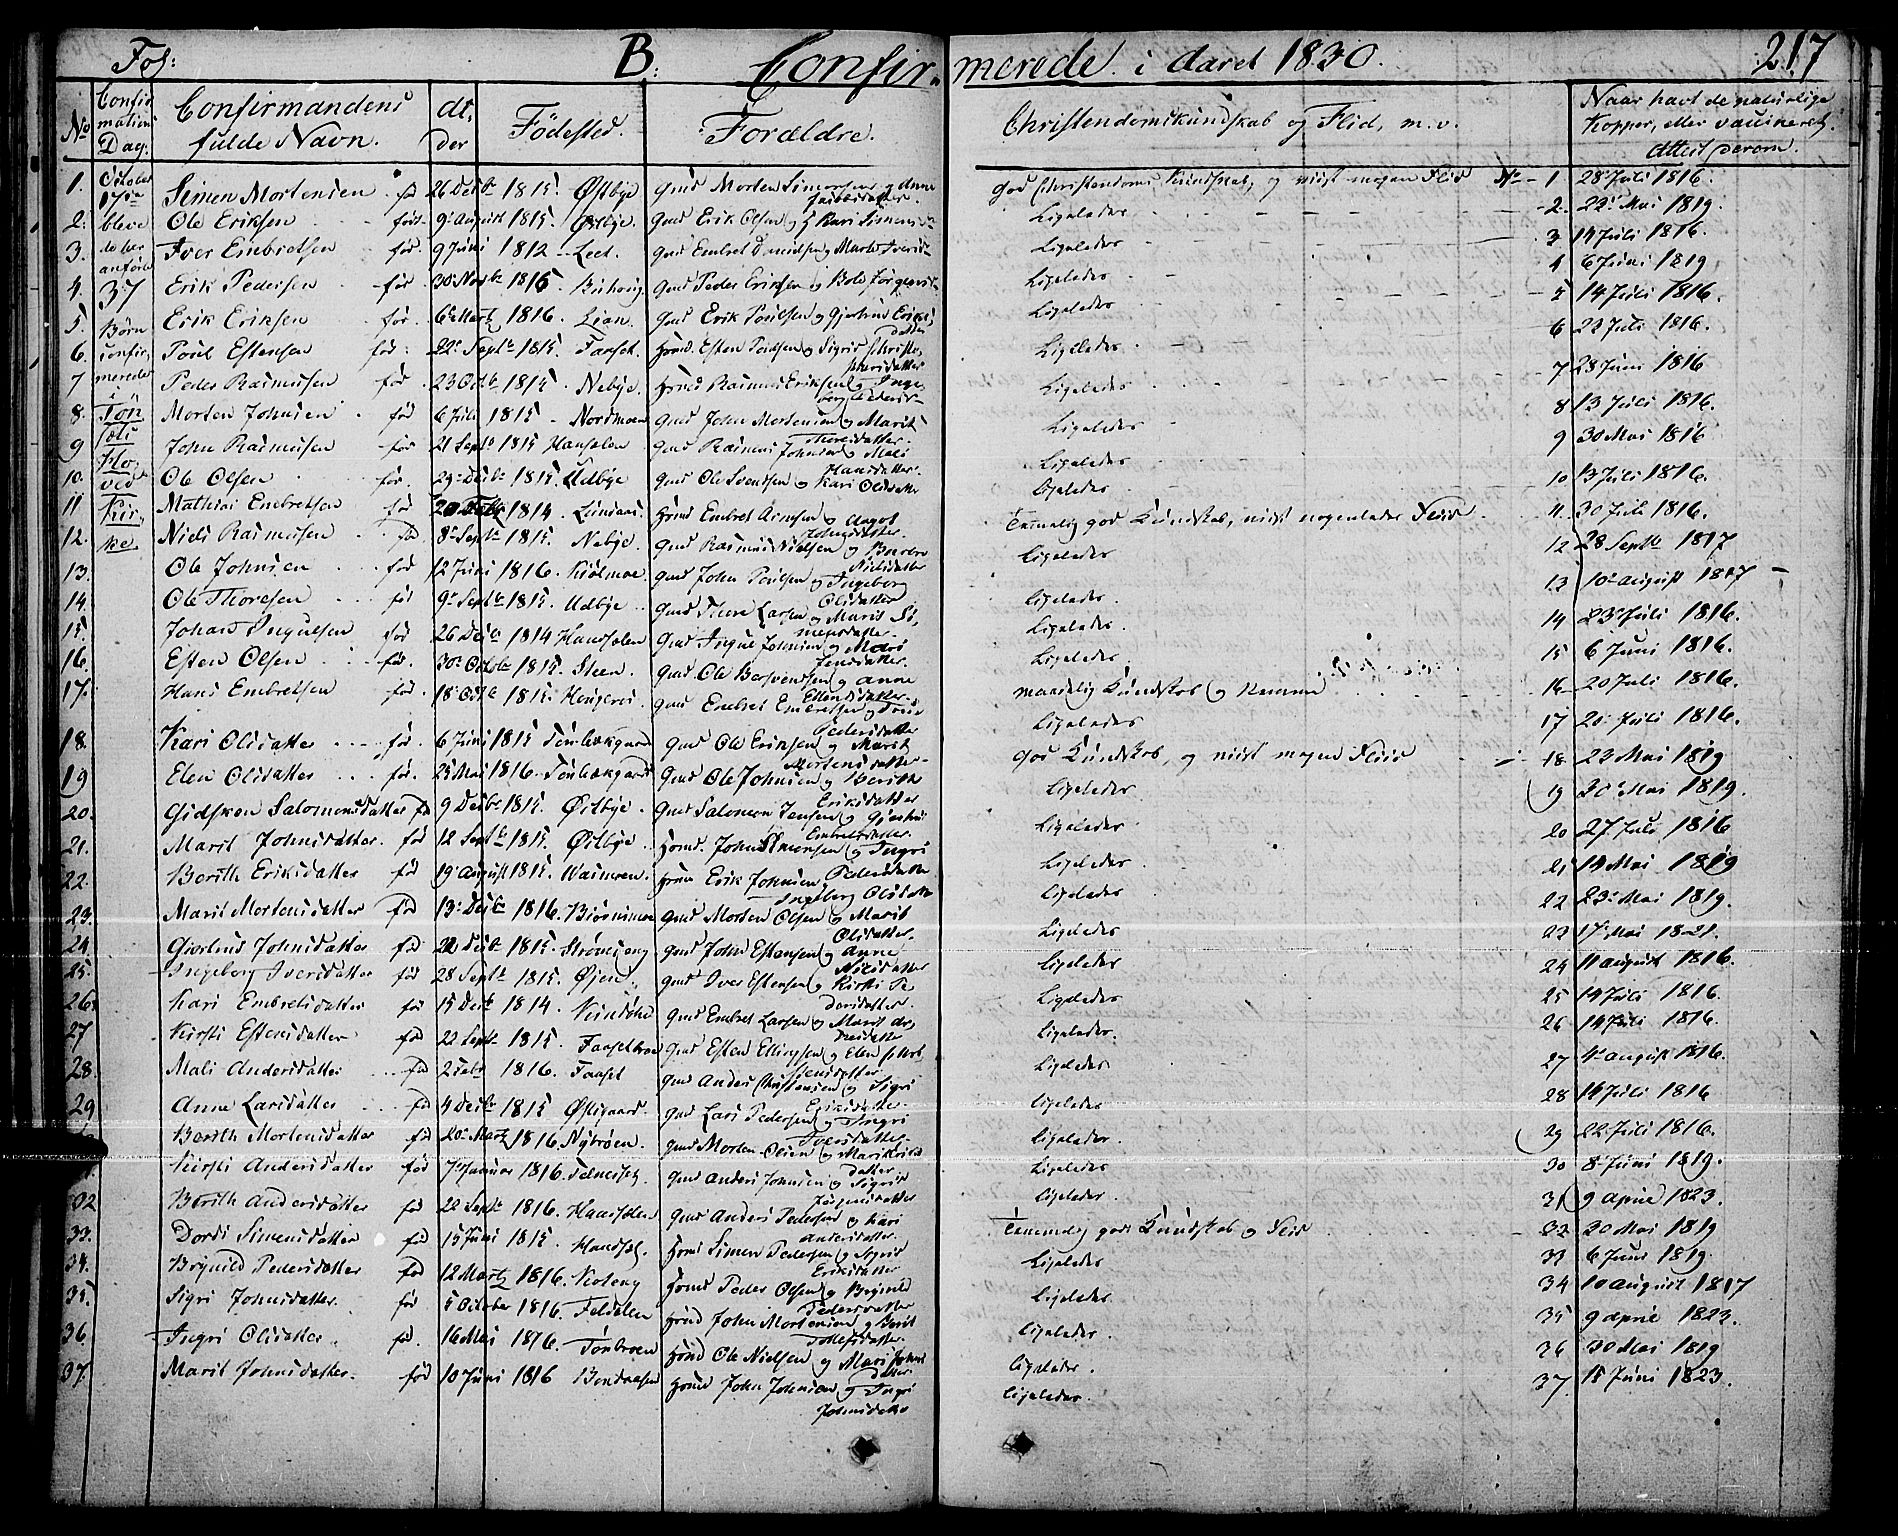 Fol: B. Confirmerede i Aaret 1830. 217
No Confirmations Dag: Confirmandens fulde Navn. dt, der Fødested. Forældre. Christendomskundskab og Flid, m.v. Naar havt de naturlige Kopper, eller vaccineret, Attest derom.
October 17de bleve de her anførte 37 Børn confirmerede i Tønsæts Hovedkirke
1. Simen Mortensen fød 26 Decbr 1815 Østbye Gmd Morten Simonsen og Anne
god Christendoms Kundskab, og viist megen Flid No 1 28 Juli 1816.
2. Ole Eriksen fød 9 August 1815 Østbye. Gmd Erik Olsen og Kari Simensd
Ligeledes 2. 22 Mai 1819.
3. Iver Embretsen fød 9 Juni 1812 Leet. Gmd Embret og Marte Iversd
Ligeledes 3 14 Juli 1816.
4. Erik Pedersen fød 30 Novbr 1815 Gmd Peder Eriksen og
Ligeledes 4 6 Juni 1819
5. Erik Eriksen fød 6 Martz 1816. Lian. Gmd Erik Poulsen og Gjertrud Eriksdatter
Ligeledes 5 14 Juli 1816.
6. Poul Estensen fød 22 Septbr 1815. Faaset. Hmd. Esten Poulsen og Sigrid
Ligeledes 6 23 Juli 1816.
7 Peder Rasmusen fød 23 Octbr 1815 Nebye. Hmd Rasmus Eriksen og Ingeborg
Ligeledes 7 28 Juni 1816
8. Morten Johnsen fød 6 Juli 1815 Nordmoen Gmd John Mortensen og Marit Thoresdatter.
Ligeledes 8 13 Juli 1816.
9 John Rasmusen fød 21 Septb 1815 Hansælen Gmd Rasmus Johnsen og Mali Hansdatter.
Ligeledes 9 30 Mai 1816
10. Ole Olsen fød. 29 Decbr 1815. Udbye Gmd Ole Svendsen og Kari Olsdatter
Ligeledes 10 13 Juli 1816.
11 Mathias Embretsen fød 20 Febr 1814. Hmd Embret Arnesen og Aagot Johnsdatter.
Temmelig god Kundskab, viist nogenledes Fliid 11. 30 Juli 1816.
12. Niels Rasmusen fød 8 Septbr 1815. Nebye. Gmd Rasmus Nielsen og Barbro Nielsdatter
Ligeledes 12 28 Septbr 1817
13. Ole Johnsen fød 12 Juni 1816. Kiølmoe Gmd John Poulsen og Ingeborg Olsdatter
Ligeledes. 13 10 August 1817
14 Ole Thoresen fød 9 Septbr 1815. Udbye Gmd Thore Larsen og Marit Simensdatter.
Ligeledes. 14 23 Juli 1816.
15. Johan Ingulsen fød 26 Decbr 1814 Hansælen Gmd Ingul Johnsen og Mari Jensdatter.
Ligeledes. 15 6 Juni 1816.
16. Esten Olsen fød. 30 Octobr 1815. Steen. Gmd Ole og Anne Estensdatter.
maadelig Kundskab og Nemme 16 20 Juli 1816.
17. Hans Embretsen fød. 18 Octbr 1815. Gmd Embret Embretsen og Pedersdatter
Ligeledes 17 20 Juli 1816.
18. Kari Olsdatter fød. 6 Juni 1815 Gmd Ole Eriksen og Marit Mortensdatter
god Kundskab, og viist megen Fliid 18 23 Mai 1819
19 Elen Olsdatter fød. 25 Mai 1816 Gmd Ole Johnsen og Berith Eriksdatter
Ligeledes 19 20 Mai 1819.
20. Gidsken Salomonsdatter fød 9 Decbr 1815. Østbye. Gmd Salomon Jensen og Embretsdatter.
Ligeledes 20 27 Juli 1816
21. Marit Johnsdatter. fød 12 Septbr 1815. Østbye Hmd. John Simensen og Ingri Pedersdatter
Ligeledes 21 14 Mai 1819
22. Berith Eriksdatter fød 19 August 1815. Hmd Erik Johnsen og Ingeborg Olsdatter
Ligeledes 22 23 Mai 1819.
23. Marit Mortensdatter fød 13 Decbr 1816. Biørnsmoe Gmd Morten Olsen og Marit Olsdatter.
Ligeledes 23 17 Mai 1821.
24. Gjertrud Johnsdatter fød 22 Decbr 1815. Strømseng Gmd John Estensen og Anne Nilsdatter
Ligeledes 24 11 August 1816.
25. Ingeborg Iversdatter fød 28 Septbr 1815. Øjen. Gmd Iver Estensen og Kirsti Pedersdatter.
Ligeledes 25 14 Juli 1816.
26. Kari Embretsdatter fød 15 Decbr 1814 Gmd Embret Larsen og Marit
Ligeledes. 26 14 Juli 1816.
27 Kirsti Estensdatter fød 22 Septbr 1815. Faasetbroe Gmd Esten Ellingsen og Elen
Ligeledes 27 4 August 1816.
28. Mali Andersdatter fød 2 Febr 1816. Faaset Gmd Anders Christensen og Sigri Eriksdatter.
Ligeledes. 28 14 Juli 1816
29 Anne Larsdatter fød 4 Decbr 1815 Østigaard. Gmd Lars Pedersen og Ingri Iversdatter
Ligeledes. 29 22 Juli 1816.
Berith Mortensdatter fød 20 Martz 1816. Nybrøen. Gmd Morten Olsen og
Ligeledes 30 8 Juni 1819.
Kirsti Andersdatter fød 7 Januar 1816. Gmd Anders Johnsen og Sigrid
Ligeledes. 31 9 April 1823.
32 Berith Andersdatter fød 22 Septbr 1816. Hansælen Gmd Anders Pedersen og Kari Andersdatter.
Temmelig godt Kundskab og Fliid 32 20 Mai 1819
33. Dordi Simensdatter fød 15 Juni 1815. Hmd Simen Pedersen og Sigrid Eriksdatter
Ligeledes 33 6 Juni 1819.
34. Brynild Pedersdatter fød 12 Martz 1816. Hmd Peder Olsen og Brynild Pedersdatter
Ligeledes 34 10 August 1817
35. Sigri Johnsdatter. fød 5 October 1816. Feldalen Hmd John Mortensen og Berit
Ligeledes. 35 9 April 1823.
36. Ingri Olsdatter fød. 16 Mai 1816. Tønbroen Hmd Ole Nielsen og Mari Johnsdatter
Ligeledes. 36 30 Mai 1819
37. Marit Johnsdatter. fød 10 Juni 1816 Hmd John Johnsen og Ingri Johnsdatter
Ligeledes. 37 15 Juni 1823.